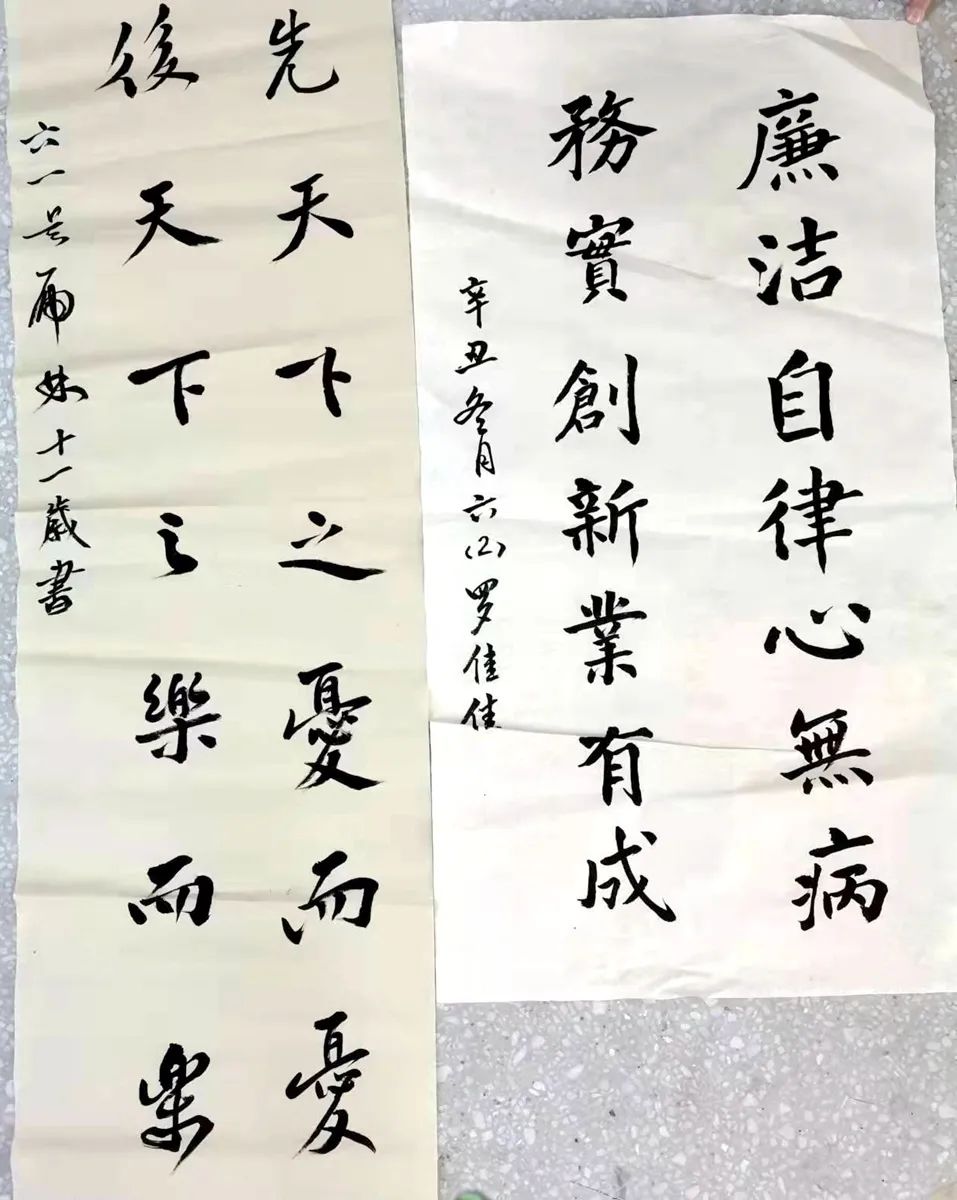 廉洁自律心無病
務實創新業有成
辛丑冬月六(2)罗佳佳
先天下之憂而憂
後天下之樂而樂
六一 妹十一歲書